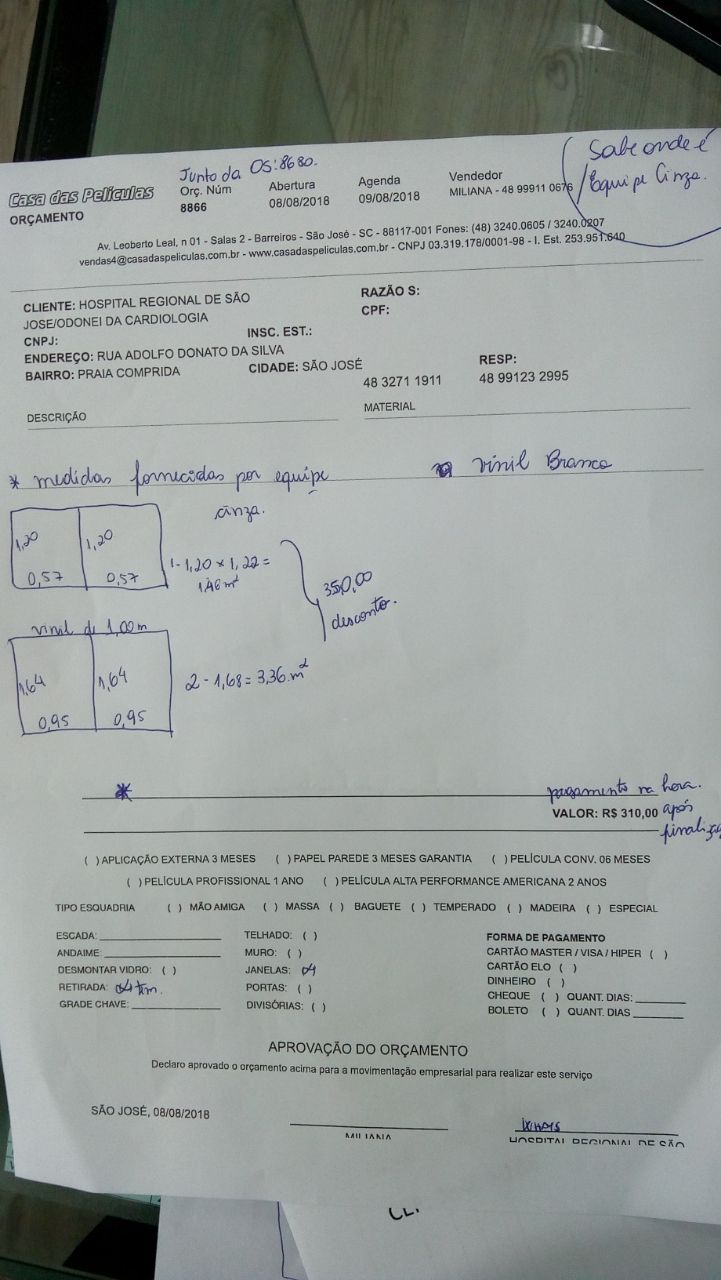 Junto da OS: 8680.
Sabe onde é
Equipe Cinza.
Casa das Películas
ORÇAMENTO
Orç. Núm
8866
Abertura
08/08/2018
Agenda
09/08/2018
Vendedor
MILIANA - 48 99911 0676
Av. Leoberto Leal, n 01 - Salas 2 - Barreiros - São José - SC - 88117-001 Fones: (48) 3240.0605 / 3240.0207
vendas4@casadaspeliculas.com.br - www.casadaspeliculas.com.br - CNPJ 03.319.178/0001-98 - I. Est. 253.951.640
CLIENTE: HOSPITAL REGIONAL DE SÃO
JOSE/ODONEI DA CARDIOLOGIA
RAZÃO S:
CPF:
CNPJ: INSC. EST.:
ENDEREÇO: RUA ADOLFO DONATO DA SILVA
BAIRRO: PRAIA COMPRIDA CIDADE: SÃO JOSÉ
48 3271 1911
RESP:
48 99123 2995
DESCRIÇÃO MATERIAL
* medidas fornecidas por equipe
cinza.
vinil Branco
1,20 1,20
0,57 0,57
1 - 1,20 x 1,22 =
1,46 m²
350,00
desconto.
vinil de 1,00m
1,64 1,64
0,95 0,95
2 - 1,68 = 3,36 m²
*
pagamento na hora.
VALOR: R$ 310,00 após
( ) APLICAÇÃO EXTERNA 3 MESES ( ) PAPEL PAREDE 3 MESES GARANTIA ( ) PELÍCULA CONV. 06 MESES
( ) PELÍCULA PROFISSIONAL 1 ANO ( ) PELÍCULA ALTA PERFORMANCE AMERICANA 2 ANOS
TIPO ESQUADRIA ( ) MÃO AMIGA ( ) MASSA ( ) BAGUETE ( ) TEMPERADO ( ) MADEIRA ( ) ESPECIAL
ESCADA:
ANDAIME:
DESMONTAR VIDRO: ( )
RETIRADA: 04 tem.
GRADE CHAVE:
TELHADO: ( )
MURO: ( )
JANELAS: 04
PORTAS: ( )
DIVISÓRIAS: ( )
FORMA DE PAGAMENTO
CARTÃO MASTER / VISA / HIPER ( )
CARTÃO ELO ( )
DINHEIRO ( )
CHEQUE ( ) QUANT. DIAS:
BOLETO ( ) QUANT. DIAS
APROVAÇÃO DO ORÇAMENTO
Declaro aprovado o orçamento acima para a movimentação empresarial para realizar este serviço
SÃO JOSÉ, 08/08/2018
MILIANA
HOSPITAL REGIONAL DE SÃO